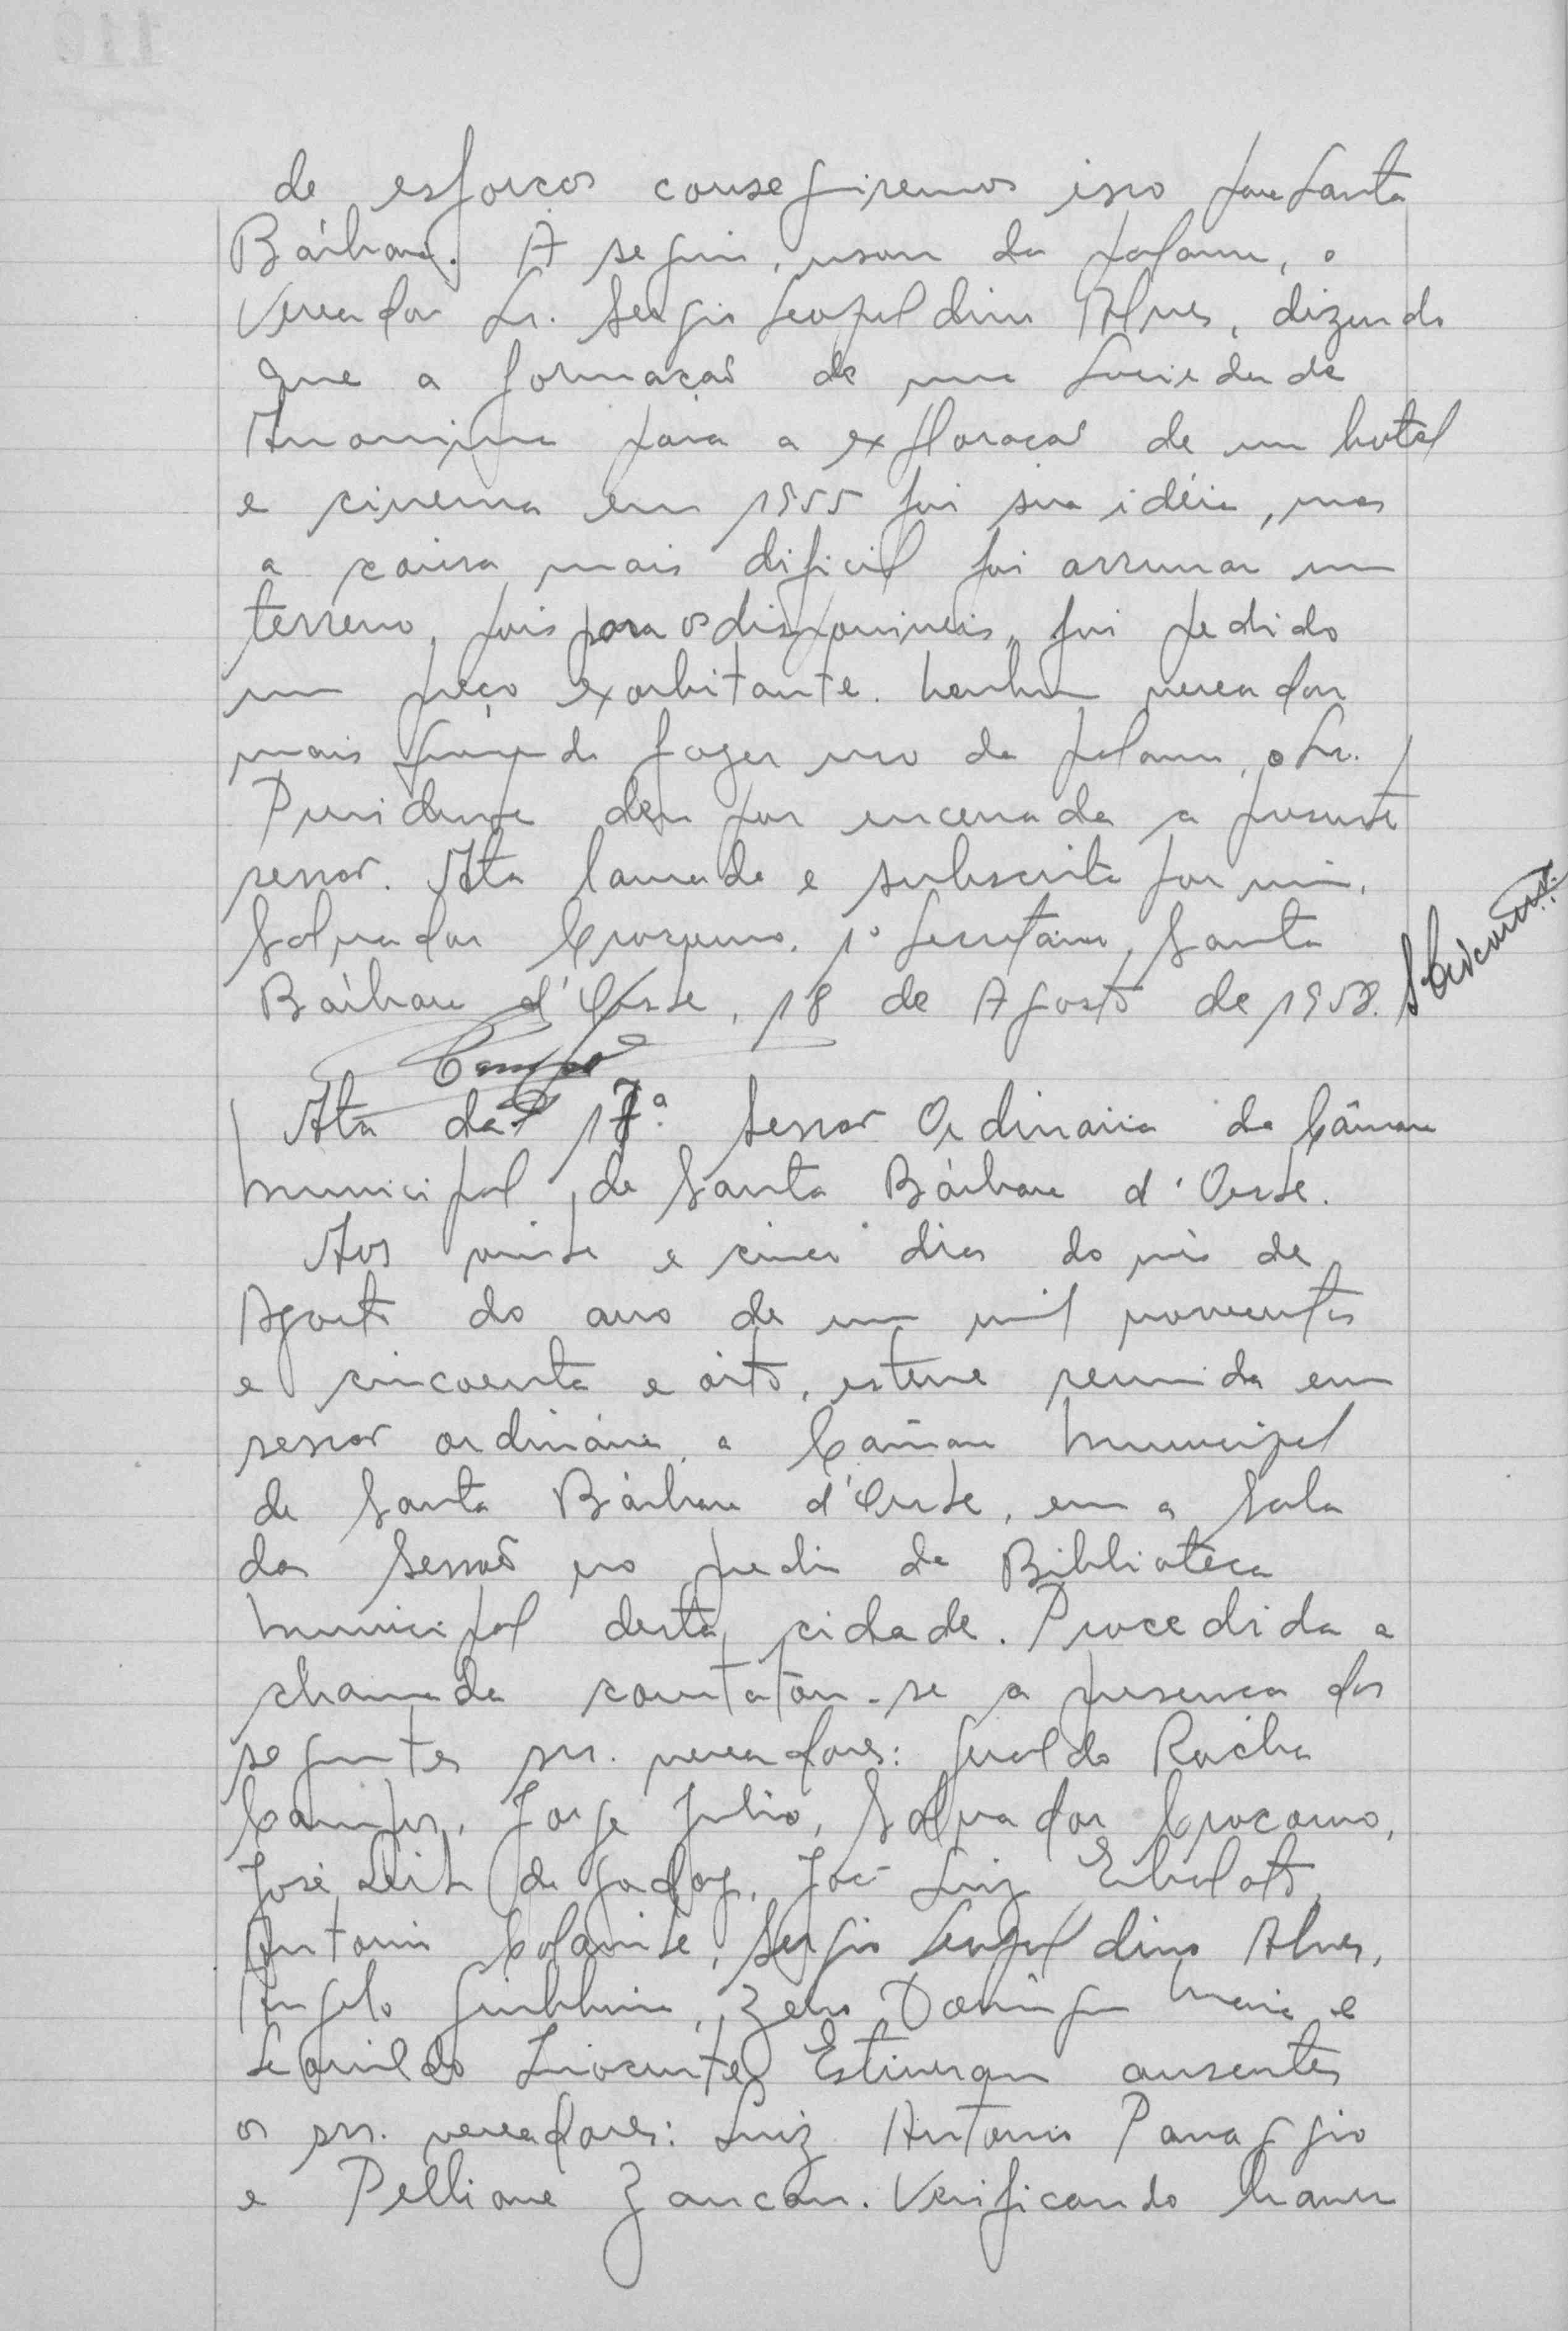 de esforços consegiremos isso para Santa
Bárbara. A seguir, usou da palavra, o
Vereador Sr. Sergio Leopoldino Alves, dizendo
que a formação de uma Sociedade
Anonima para a exploração de um hotel
e cinema em 1955 foi sua idéia, mas
a coisa mais dificil foi arrumar um
terreno, pois para os disponiveis, foi pedido
um preço exorbitante. Nenhum vereador
mais fazer uso da palavra, o Sr.
Presidente deu por encerrada a presente
sessão. Ata lavrada e subscrita por mim,
Salvador Crozuno, 1º Secretário, Santa
Bárbara d'Oeste, 18 de Agosto de 1958.
Campos
Ata da 17ª Sessão Ordinaria da Câmara
Municipal de Santa Bárbara d'Oeste.
Aos vinte e cinco dias do mês de
Agosto do ano de um mil novecentos
e cincoenta e oito, esteve reunida em
sessão ordinária, a Câmara Municipal
de Santa Bárbara d'Oeste, em a Sala
das Sessões no predio da Biblioteca
Municipal desta cidade. Procedida a
chamada constatou-se a presença dos
seguintes srs. vereadores: Geraldo Rocha
Campos, Jorge Julio, Salvador Crocomo,
José Leite de Godoy, José Luiz
Antonio Colamite, Sergio Leopoldino Alves,
Angelo Giubbina, Zeno Domingos Maia e
Leonildo Estiveram ausentes
os srs. vereadores: Luiz Antonio Panaggio
e Zancan. Verificando haver